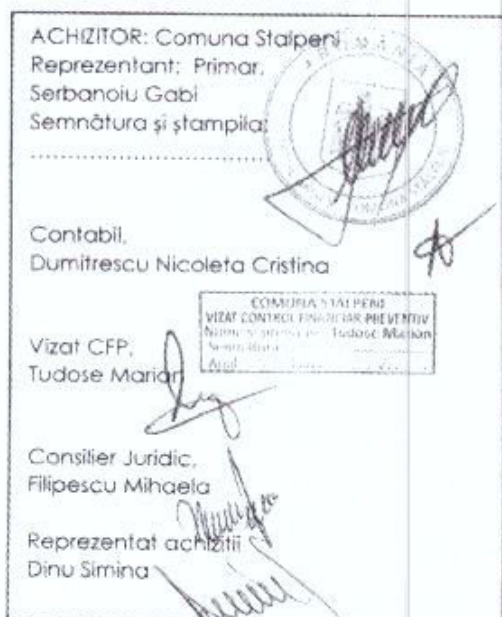 ACHIZITOR: Comuna Stalpeni
Reprezentant: Primar,
Serbanoiu Gabi
Semnătura și ștampila:
ROMÂNIA
Contabil,
Dumitrescu Nicoleta Cristina
COMUNA STALPENI
VIZAT CONTROL FINANCIAR PREVENTIV
Tudose Marian
Semnătura
Anul
Vizat CFP,
Tudose Marian
Consilier Juridic,
Filipescu Mihaela
Reprezentat achizitii
Dinu Simina